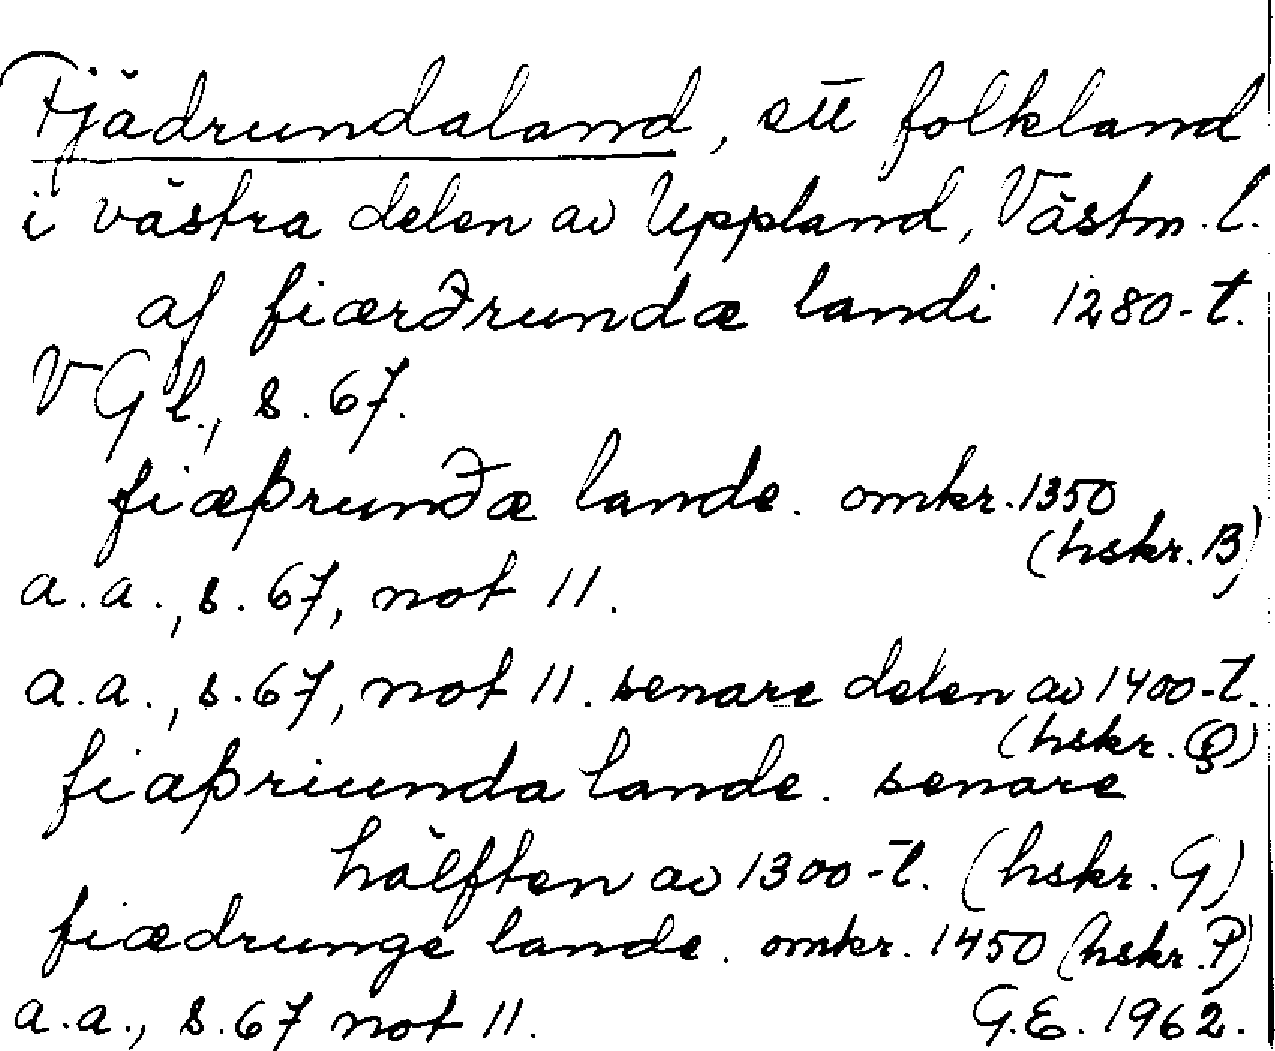 Fjädrundaland, ett folkland
i västra delen av Uppland, Västm. l.
af fiærðrundæ landi 1280-t.
VGL, s. 67.
fiæþrunðæ lande. omkr. 1350
(hskr. B)
a.a., s. 67, not 11.
a.a., s. 67, not 11. senare delen av 1400-t.
(hskr. Q)
fiæþriunda lande. senare
hälften av 1300-t. (hskr. G)
fiædrunge lande. omkr. 1450 (hskr. P)
a.a., s. 67 not 11. G.E. 1962.